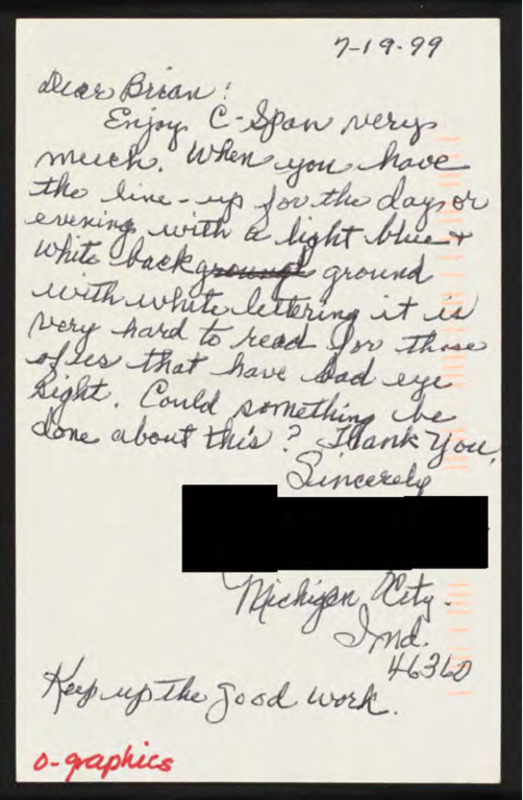 7-19-99
Dear Brian:
Enjoy C-Span very
much. When you have
the line-up for the day or
evening with a light blue +
white background ground
with white lettering it is
very hard to read for those
of us that have bad eye
sight. Could something be
done about this? Thank You,
Sincerely
Michigan City.
Ind.
46360
Keep up the good work.
o-graphics